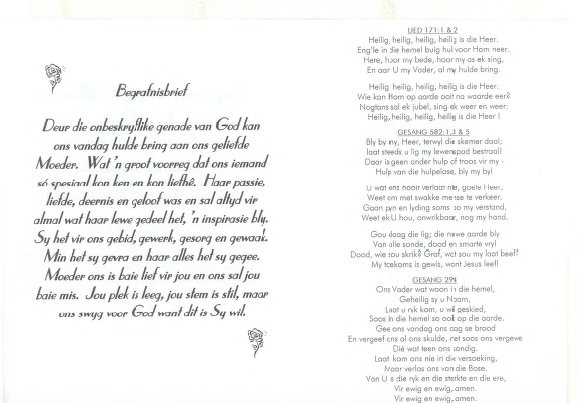 Begrafnisbrief
Deur die onbeskryflike genade van God kan
ons vandag hulde bring aan ons geliefde
Moeder. Wat 'n groot voorreg dat ons iemand
só spesiaal kon ken en kon liefhê. Haar passie,
liefde, deernis en geloof was en sal altyd vir
almal wat haar lewe gedeel het, 'n inspirasie bly.
Sy het vir ons gebid, gewerk, gesorg en gewaak.
Min het sy gevra en haar alles het sy gegee.
Moeder ons is baie lief vir jou en ons sal jou
baie mis. Jou plek is leeg, jou stem is stil, maar
ons swyg voor God want dit is Sy wil.
LIED 171:1 & 2
Heilig, heilig, heilig, heilig is die Heer.
Eng'le in die hemel buig hul voor Hom neer.
Here, hoor my bede, hoor my as ek sing,
En aar U my Vader, al my hulde bring.
Heilig, heilig, heilig, heilig is die Heer.
Wie kan Hom op aarde ooit na waarde eer?
Nogtans sal ek jubel, sing ek weer en weer:
Heilig, heilig, heilig, heilig is die Heer !
GESANG 582:1,3 & 5
Bly by my, Heer, terwyl die skemer daal;
laat steeds u lig my lewenspad bestraal!
Daar is geen ander hulp of troos vir my -
Hulp van die hulpelose, bly my by!
U wat ons nooit verlaat nie, goeie Heer,
Weet om met swakke mense te verkeer.
Gaan pyn en lyding soms bo my verstand,
Weet ek U hou, onwrikbaar, nog my hand.
Gou daag die lig; die nuwe aarde bly
Van alle sonde, dood en smarte vry!
Dood, wie sou skrik? Graf, wat sou my laat beef?
My toekoms is gewis, want Jesus leef!
GESANG 294
Ons Vader wat woon in die hemel,
Geheilig sy u Naam,
Laat u ryk kom, u wil geskied,
Soos in die hemel so ook op die aarde.
Gee ons vandag ons daaglikse brood
En vergeef ons al ons skulde, net soos ons vergewe
Dié wat teen ons sondig.
Laat kom ons nie in die versoeking,
Maar verlos ons van die Bose.
Van U is die ryk en die sterkte en die ere,
Vir ewig en ewig, amen.
Vir ewig en ewig, amen.